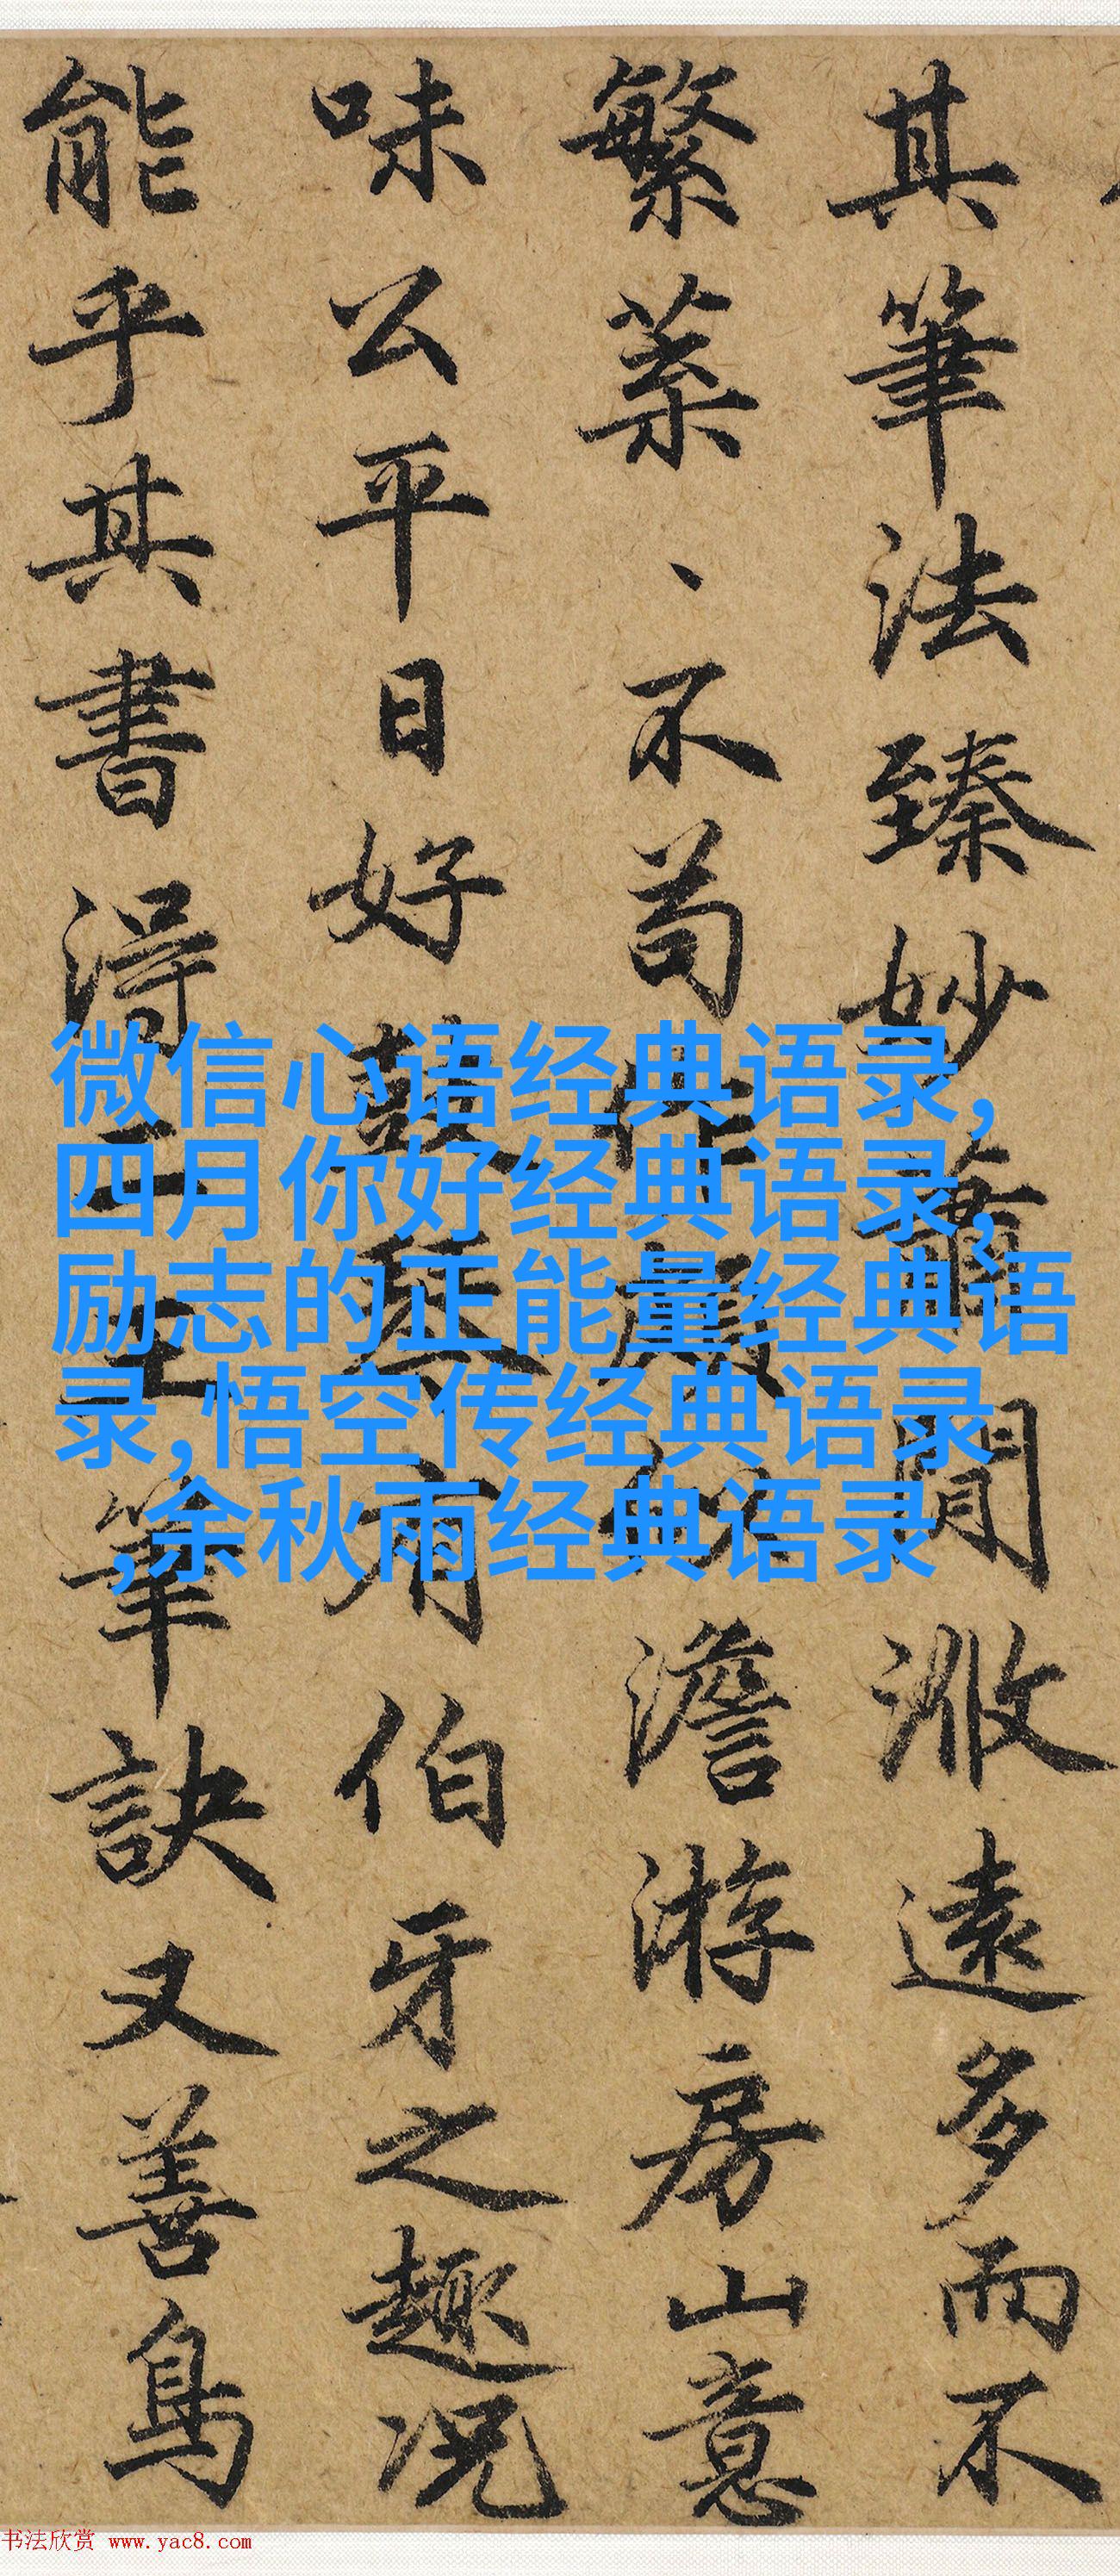 其筆法臻妙蕭閒淡遠多而不
繁菜、不苟作最似澹游房山意
味公平日好鼓琴有伯牙之趣況
能乎其書得二王筆訣又善鳥
微信心语经典语录,
四月你好经典语录,
励志的正能量经典语
录,悟空传经典语录
,余秋雨经典语录
书法欣赏 www.yac8.com